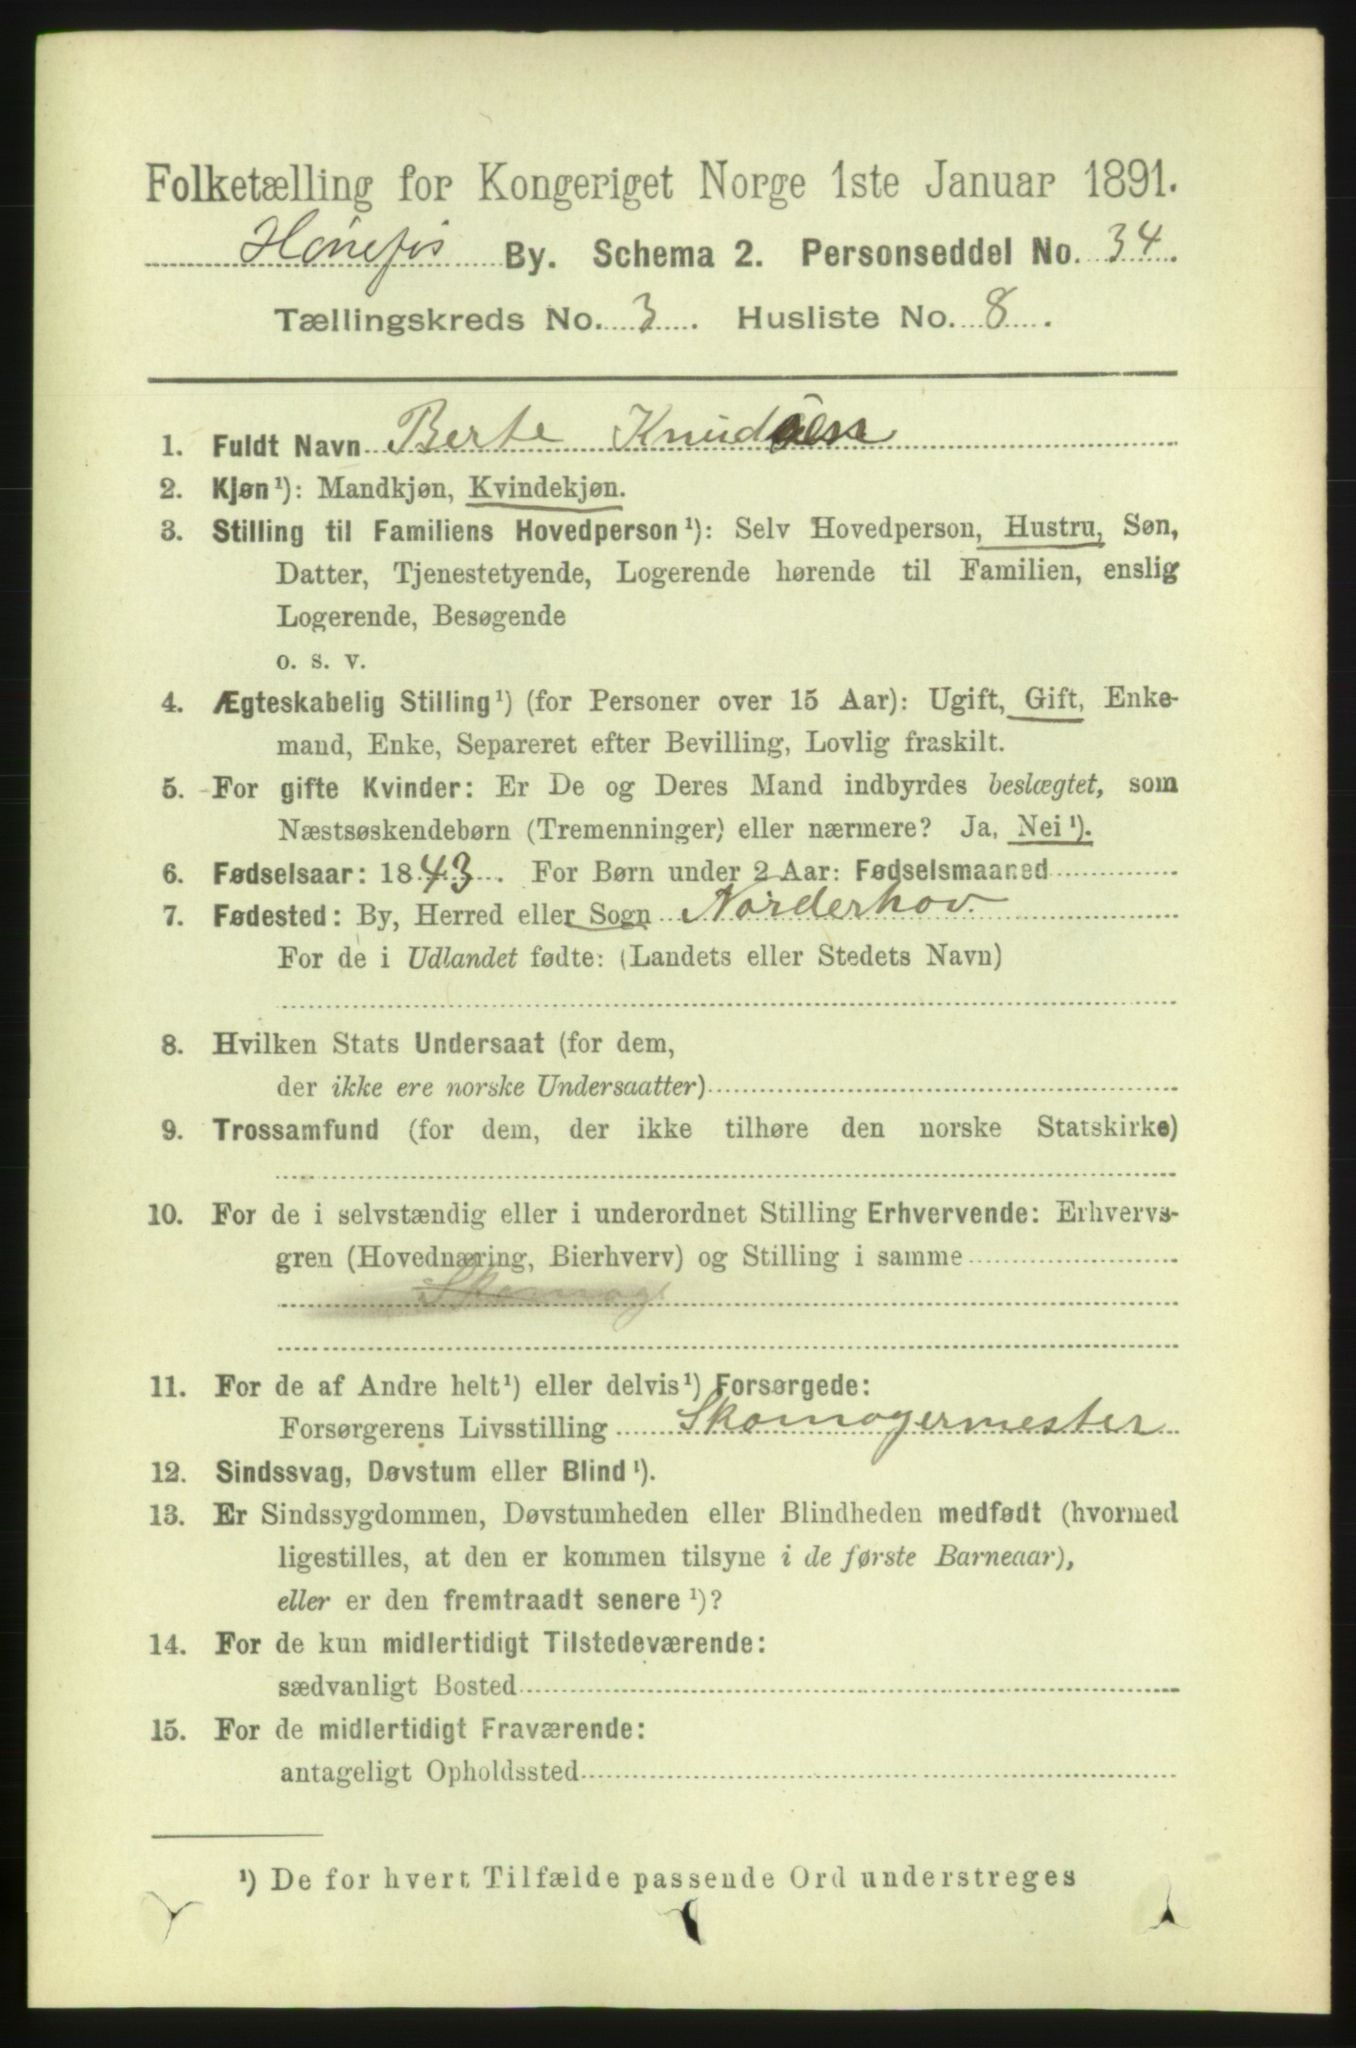 Folketælling for Kongeriget Norge 1ste Januar 1891.
Hønefos By. Schema 2. Personseddel No. 34.
Tællingskreds No. 3. Husliste No. 8.
1. Fuldt Navn Berte Knudsen
2. Kjøn ¹): Mandkjøn, Kvindekjøn.
3. Stilling til Familiens Hovedperson ¹): Selv Hovedperson, Hustru, Søn,
Datter, Tjenestetyende, Logerende hørende til Familien, enslig
Logerende, Besøgende
o. s. v.
4. Ægteskabelig Stilling ¹) (for Personer over 15 Aar): Ugift, Gift, Enke-
mand, Enke, Separeret efter Bevilling, Lovlig fraskilt.
5. For gifte Kvinder: Er De og Deres Mand indbyrdes beslægtet, som
Næstsøskendebørn (Tremenninger) eller nærmere? Ja, Nei ¹).
6. Fødselsaar: 1843. For Børn under 2 Aar: Fødselsmaaned
7. Fødested: By, Herred eller Sogn Norderhov.
For de i Udlandet fødte: (Landets eller Stedets Navn)
8. Hvilken Stats Undersaat (for dem,
der ikke ere norske Undersaatter)
9. Trossamfund (for dem, der ikke tilhøre den norske Statskirke)
10. For de i selvstændig eller i underordnet Stilling Erhvervende: Erhvervs-
gren (Hovednæring, Bierhverv) og Stilling i samme
Skomag
11. For de af Andre helt ¹) eller delvis ¹) Forsørgede:
Forsørgerens Livsstilling Skomagermester
12. Sindssvag, Døvstum eller Blind ¹).
13. Er Sindssygdommen, Døvstumheden eller Blindheden medfødt (hvormed
ligestilles, at den er kommen tilsyne i de første Barneaar),
eller er den fremtraadt senere ¹)?
14. For de kun midlertidigt Tilstedeværende:
sædvanligt Bosted
15. For de midlertidigt Fraværende:
antageligt Opholdssted
¹) De for hvert Tilfælde passende Ord understreges